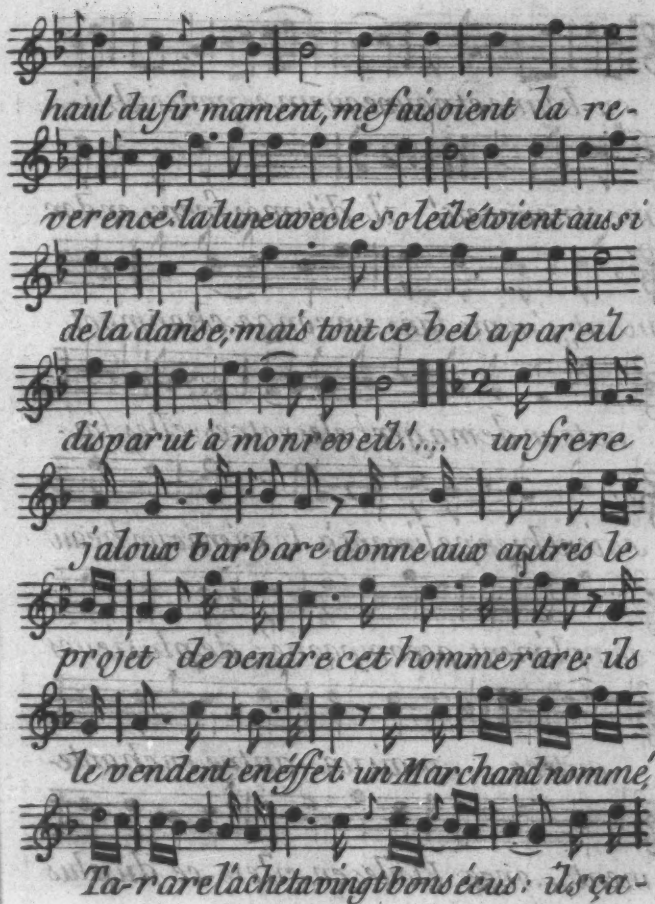 haut du fir mament, me faisoient la re-
verence. la lune avec le soleil étoient aussi
de la danse, mais tout ce bel apareil
2
disparut à mon reveil!... un frere
jaloux barbare donne aux autres le
projet de vendre cet homme rare: ils
le vendent en éffet. un Marchand nommé
Ta-rare l'acheta vingt bons écus: ils ça-